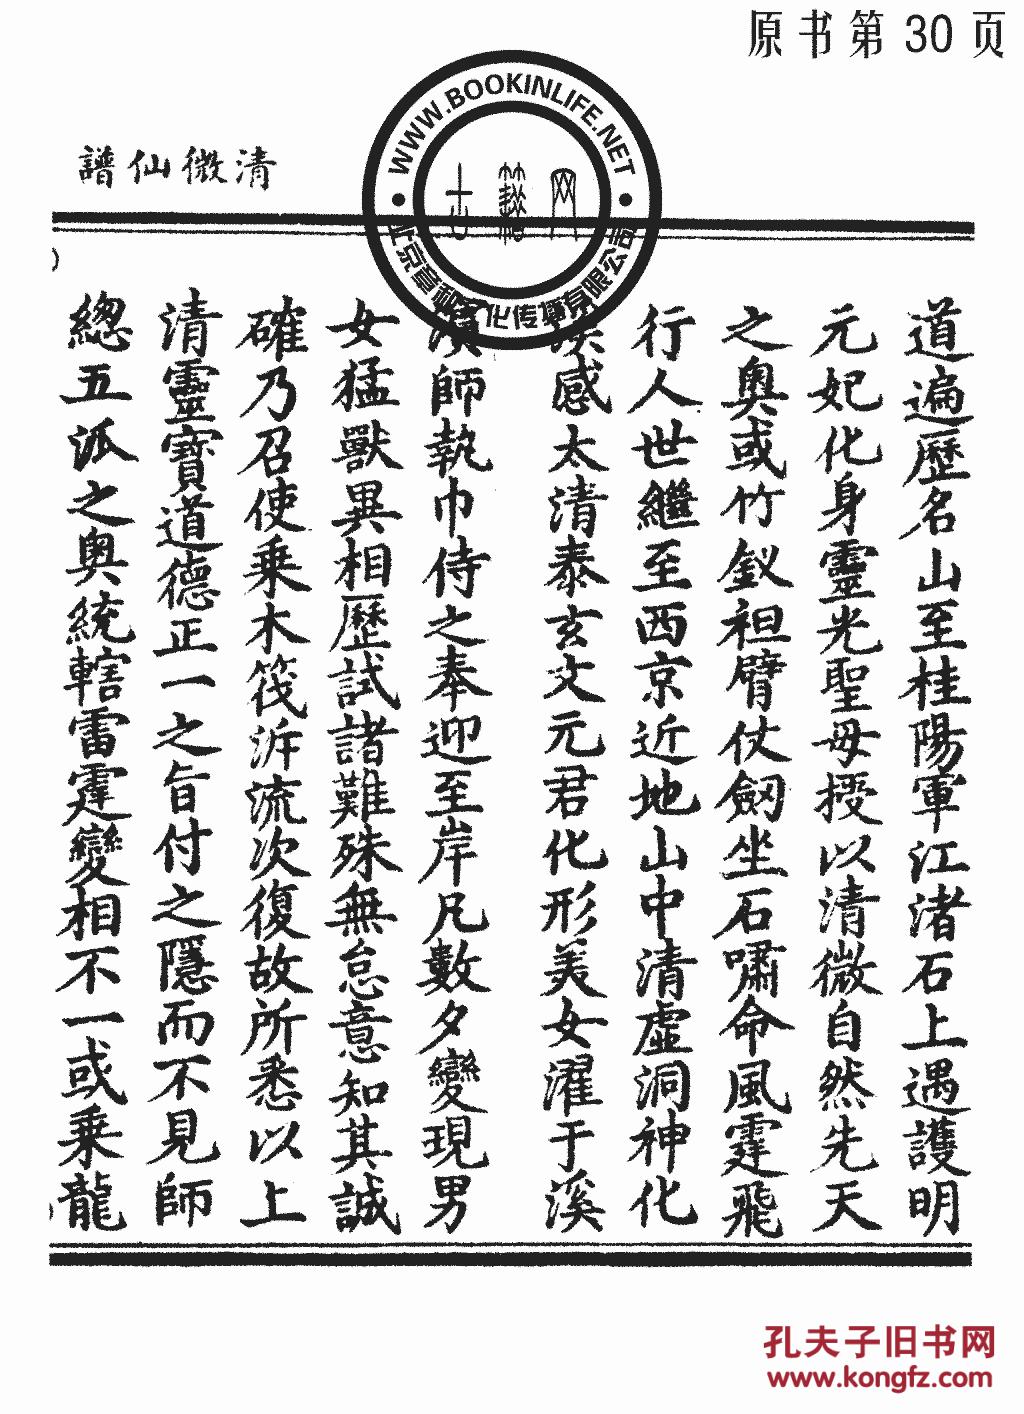 原书第30页
WWW.BOOKINLIFE.NET
清微仙譜
道遍歷名山至桂陽軍江渚石上遇護明
元妃化身靈光聖母授以清微自然先天
之奧或竹釵袒臂仗劒坐石嘯命風霆飛
行人世繼至西京近地山中清虛洞神化
感太清泰玄文元君化形美女濯于溪
濱師執巾侍之奉迎至岸凡數夕變現男
女猛獸異相歷試諸難殊無怠意知其誠
確乃召使乘木筏泝流次復故所悉以上
清靈寶道德正一之旨付之隱而不見師
總五派之奧統轄雷霆變相不一或乘龍
孔夫子旧书网
www.kongfz.com